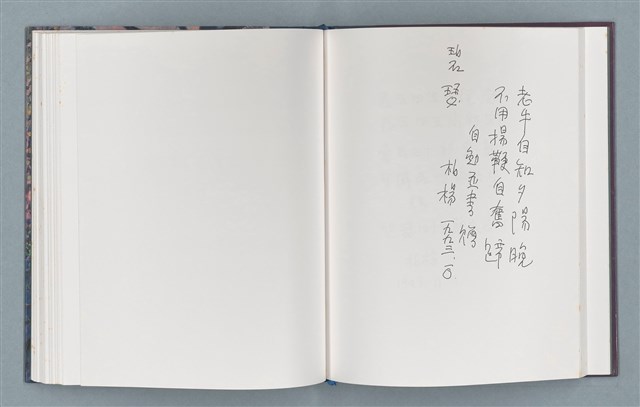 老牛自知夕陽晚
不用揚鞭自奮蹄
自勉並書贈
碧
柏楊 一九九三.